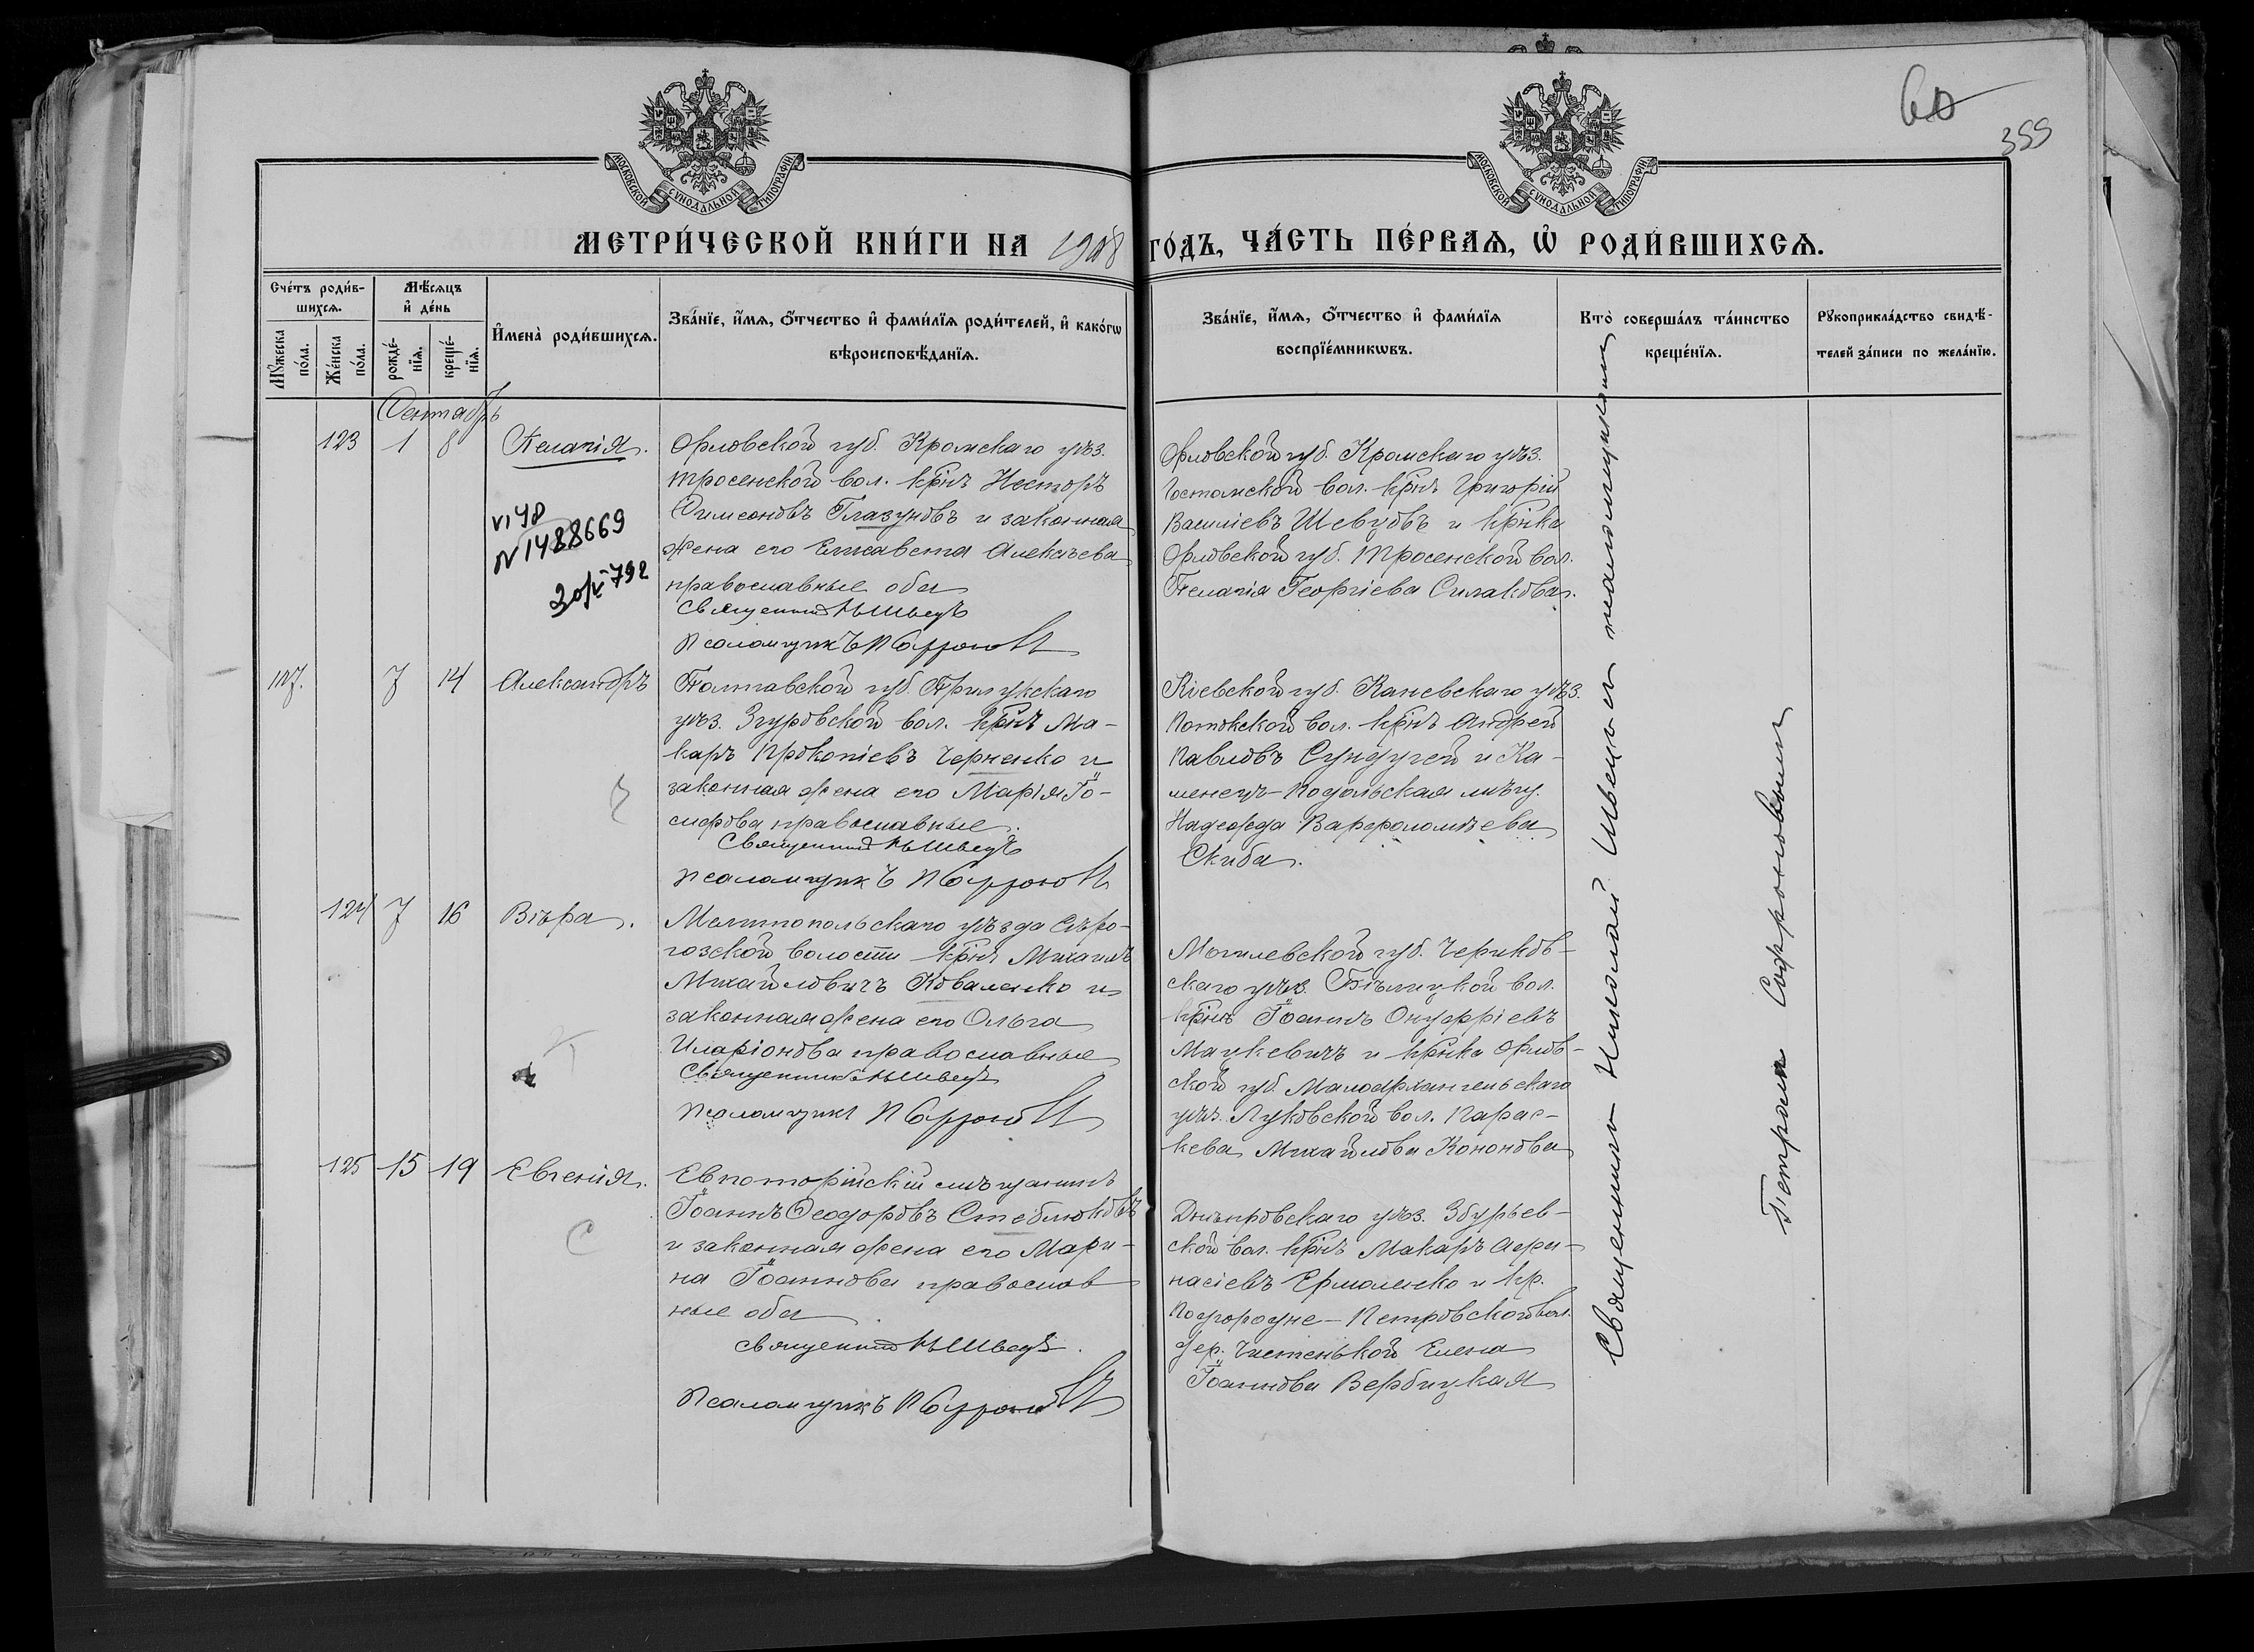 60
355
МОСКОВСКОЙ СѴНОДАЛЬНОЙ ТИПОГРАФІИ
МОСКОВСКОЙ СѴНОДАЛЬНОЙ ТИПОГРАФІИ
МЕТРИ́ЧЕСКОЙ КНИ́ГИ НА 1908 ГО́ДЪ, ЧА́СТЬ ПЕ́РВАѦ, Ѡ҆ РОДИ́ВШИХСѦ.
Сче́тъ роди́в-
шихсѧ.
Мꙋ́жеска по́ла.
Же́нска по́ла.
Мѣ́сѧцъ
и҆ де́нь
рожде́-
нїѧ.
креще́-
нїѧ.
И҆мена̀ роди́вшихсѧ.
Зва́нїе, и҆́мѧ, ѻ҆́тчество и҆ фами́лїѧ роди́телей, и҆ како́гѡ
вѣроисповѣ́данїѧ.
Зва́нїе, и҆́мѧ, ѻ҆́тчество и҆ фами́лїѧ
воспрїе́мникѡвъ.
Кто̀ соверша́лъ та́инство
креще́нїѧ.
Рꙋкоприкла́дство свидѣ́-
телей за́писи по жела́нїю.
Сентябрь
123 1 8 Пелагія.
Орловской губ. Кромскаго уѣз.
Тросенской вол. крнъ Несторъ
Симеоновъ Глазуновъ и законная
жена его Елисавета Алексѣева
православные оба
Священникъ Н Швецъ
Псаломщикъ П Софроновъ
VI 48
N 1488669
792
Орловской губ. Кромскаго уѣз.
Гостомской вол. крнъ Григорій
Василіевъ Шевцовъ и крнка
Орловской губ. Тросенской вол.
Пелагія Георгіева Силакова.
107. 7 14 Александръ
Полтавской губ. Прилукскаго
уѣз. Згуровской вол. крнъ Ма-
каръ Прокопіевъ Черненко и
законная жена его Марія Іо-
сифова православные.
Священникъ Н Швецъ
Псаломщикъ П Софроновъ
Кіевской губ. Каневскаго уѣз.
Потокской вол. крнъ Андрей
Павловъ Сундугей и Ка-
менецъ-Подольская мѣщ.
Надежда Варфоломѣева
Скиба.
124 7 16 Вѣра.
Мелитопольскаго уѣзда Сѣро-
гозской волости крнъ Михаилъ
Михайловичъ Коваленко и
законная жена его Ольга
Иларіонова православные
Священникъ Н Швецъ
Псаломщикъ П Софроновъ
Могилевской губ. Чериков-
скаго уѣз. Бѣлицкой вол.
крнъ Іоаннъ Онуфріевъ
Мацкевичъ и крнка Орлов-
ской губ. Малоархангельскаго
уѣз. Луковской вол. Парас-
кева Михайлова Кононова
125 15 19 Евгенія.
Евпаторійскій мѣщанинъ
Іоаннъ Ѳеодоровъ Стеблюковъ
и законная жена его Мари-
на Іоаннова православ
ные оба
Священникъ Н Швецъ.
Псаломщикъ П Софроновъ
С
Днѣпровскаго уѣз. Збурьев-
ской вол. крнъ Макаръ Афа-
насіевъ Ермоленко и кр.
Подгородне-Петровской вол.
дер. Чистенькой Елена
Іоаннова Вербицкая
Священникъ Николай Швецъ и псаломщикомъ
Петромъ Софроновымъ